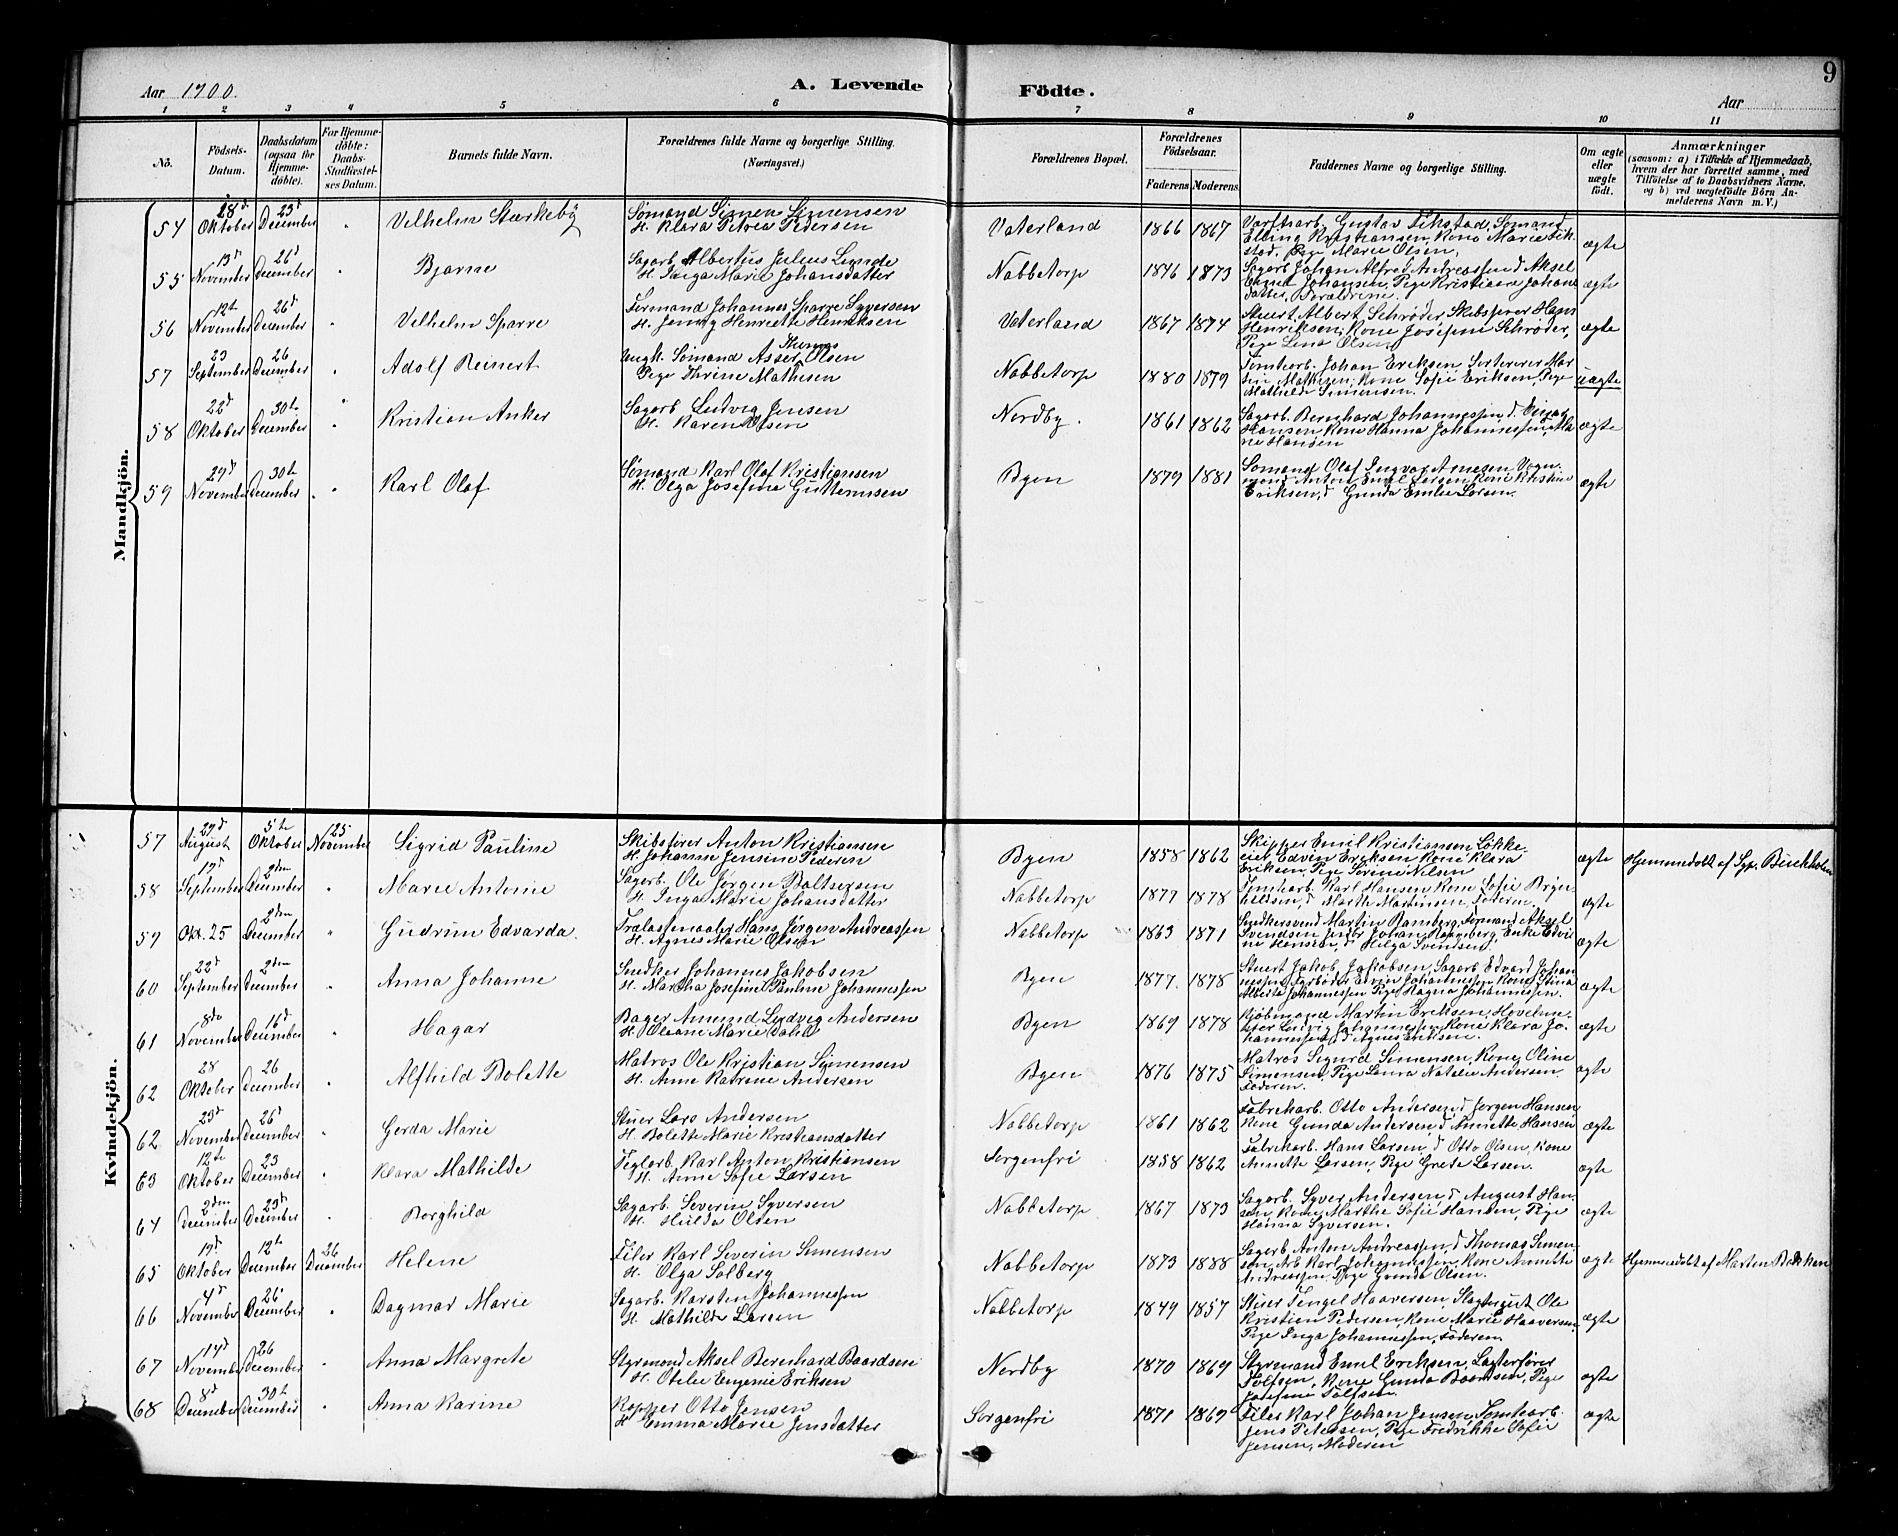 9
Aar 1900. A. Levende Födte. Aar
1 2 3 4 5 6 7 8 9 10 11
No.
Födsels-
Datum.
Daabsdatum
(ogsaa för
Hjemme-
döbte).
For Hjemme-
döbte:
Daabs-
Stadfæstel-
ses Datum.
Barnets fulde Navn.
Forældrenes fulde Navne og borgerlige Stilling.
(Næringsvei.)
Forældrenes Bopæl.
Forældrenes
Födselsaar.
Faderens Moderens
Faddernes Navne og borgerlige Stilling.
Om ægte
eller
uægte
födt.
Anmærkninger
(saasom: a) i Tilfælde af Hjemmedaab,
hvem der har forrettet samme, med
Tilföielse af to Daabsvidners Navne,
og b) ved uægtefödte Börn An-
melderens Navn m. V.)
Mandkjön.
54 28d Oktober 23d December " Vilhelm Stærkeby Sømand Simen Simensen
H. Klara Petrea Pedersen Vaterland 1866 1867 Gustav Fikstad, Sømand
Elling Kristiansen, Kone Marie Fik-
stad, Pige Marie Olsen, ægte
55 13d November 26d December " Bjarne Sagarb. Albertus Julius Lunde
H. Inga Marie Johansdatter Nabbetorp 1846 1873 Sagarb. Johan Alfred Andreassen, d Aksel
Johansen, Pige Kristiane Johans
datter, Forældrene. ægte
56 12te November 26d December " Vilhelm Sparre Formand Johannes Sparre Syversen
H. Jenny Henriette Henriksen Vaterland 1867 1874 Stuert Albert Schrøder, Skibsfører Hans
Henriksen, Kone Josefine Schrøder,
Pige Lina Olsen ægte
57 23 September 26 December " Adolf Reinert Ungk. Sømand Asser Thomas Olsen
Pige Thrine Mathisen Nabbetorp 1880 1879 Tomtearb. Johan Eriksen, Sorterer Mar-
tin Mathisen, Kone Sofie Eriksen, Pige
Mathilde Simensen. uægte
58 22d Oktober 30te December " Kristian Anker Sagarb. Ludvig Jensen
H. Karen Olsen Nordby. 1861 1862 Sagarb. Bernhard Johannessen, d. Einar
Hansen, Kone Hanna Johannessen, Ma
rie Hansen ægte
59 29d November 30te December " Karl Olaf Sømand Karl Olaf Kristiansen
H. Olga Josefine Guttormsen Byen 1879 1881 Sømand Olaf Ingvar Arnesen, Vogn-
mand Anton Emil Larsen, Kone Kristine
Eriksen, d Gunda Emilie Larsen. ægte
Kvindekjön.
57 29d August 5te Oktober 25 November Sigrid Pauline Skibsfører Anton Kristiansen
H. Johanne Jensine Pedersen Byen 1858 1862 Skipper Emil Kristiansen Løkke-
Edvin Eriksen, Kone Klara
Eriksen, Pige Sørine Nilsen ægte Hjemmedöbt af Spr. Birkholm
58 September 2den December " Marie Antonie Sagarb. Ole Jørgen Baltsersen
H. Inga Marie Johansdatter Nabbetorp 1877 1878 Tomtearb. Karl Hansen, Kone Sofie
d Marthe Martinsen, Faderen. ægte
59 Okt. 25 2den December " Gudrun Edvarda. Trælastmaaler Hans Jørgen Andreassen
H. Agnes Marie Olsen Nabbetorp 1863 1871 Snedkersvend Martin Ramberg, Formand Aksel
Svendsen, Johan Ramberg, Enke Edvi-
ne Hansen, d Helga Svendsen. ægte
60 22d September 2den December " Anna Johanne Snedker Johannes Jakobsen
H. Martha Josefine Pauline Johannessen Byen 1877 1878 Stuert Jakob Jakobsen, Sagarb. Edvard Johan-
nessen, Edvin Johannessen, Kone Stina
Alberta Johannessen, Pige Ragna Johannessen. ægte
61 8de November 16d December " Hagar Bager Amund Ludvig Andersen
H. Oleane Marie Dahl Byen 1869 1878 Kjøbmand Martin Eriksen, Høvelme-
ster Ludvig Johannessen, Kone Klara Jo-
hannessen, d Agnes Eriksen. ægte
62 28 Oktober 26 December " Alfhild Bolette Matros Ole Kristian Simensen
H. Anne Katrine Andersen Byen 1876 1875 Matros Sigurd Simensen, Kone Oline
Simensen, Pige Laura Natalie Andersen
Faderen. ægte
62 23d November 26d December " Gerda Marie Stuer Lars Andersen
H. Bolette Marie Kristiansdatter Nabbetorp 1861 1862 Fabrikarb. Otto Andersen, d Jørgen Hansen,
Kone Gunda Andersen, d Annette Hansen ægte
63 12te Oktober 23 December " Klara Mathilde Teglarb. Karl Anton Kristiansen
H. Anne Sofie Larsen Sorgenfri 1858 1862 Fabrikarb. Hans Larsen, d Otto Olsen, Kone
Annette Larsen, Pige Grete Larsen. ægte
64 2den December 23d December " Borghild Sagarb. Severin Syversen
H. Hulda Olsen Nabbetorp 1867 1873 Sagarb. Syver Andersen, d August Han-
sen, Kone Marthe Sofie Hansen, Pige
Hanna Syversen. ægte
65 Oktober 12te December 26 December Helene Filer Karl Severin Simensen
H. Olga Solberg Nabbetorp 1873 1888 Sagarb. Anton Andreassen, d Thomas Simen-
sen, Arb. Karl Johannessen, Kone Annette
Andreassen, Pige Gunda Olsen. ægte Hjemmedöbt af Marten Bakken
66 4d November 26d December " Dagmar Marie Sagarb. Karsten Johannessen
H. Mathilde Larsen Nabbetorp 1849 1857 Stuer Tengel Haaversen, Slagtergut Ole
Kristian Pedersen, Kone Marie Haaversen,
Pige Inga Johannessen, Faderen. ægte
67 14d November 26 December " Anna Margrete Styrmand Aksel Bernhard Baardsen
H. Otelie Eugenie Eriksen Nordby 1870 1869 Styrmand Emil Eriksen, Lagterfører
Tolfsen, Kone Gunda Baardsen, Pige
Josefine Tolfsen. ægte
68 8d December 30te December " Anna Karine Kopper Otto Jensen
H Emma Marie Jensdatter Sorgenfri 1871 1869 Filer Karl Johan Jensen, Tomtearb.
Jens Petersen, Pige Fredrikke Sofie
Jensen, Moderen ægte